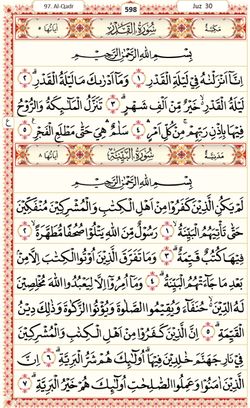 97. Al-Qadr 598 Juz 30
مكية سورة القدر آياتها ٥
بِسْمِ اللهِ الرَّحْمٰنِ الرَّحِيْمِ
اِنَّآ اَنْزَلْنٰهُ فِيْ لَيْلَةِ الْقَدْرِ ١ وَمَآ اَدْرٰىكَ مَا لَيْلَةُ الْقَدْرِ ٢
لَيْلَةُ الْقَدْرِ خَيْرٌ مِّنْ اَلْفِ شَهْرٍ ٣ تَنَزَّلُ الْمَلٰۤىِٕكَةُ وَالرُّوْحُ
فِيْهَا بِاِذْنِ رَبِّهِمْ مِّنْ كُلِّ اَمْرٍ ٤ سَلٰمٌ هِيَ حَتّٰى مَطْلَعِ الْفَجْرِ ٥
مدنية سورة البينة آياتها ٨
بِسْمِ اللهِ الرَّحْمٰنِ الرَّحِيْمِ
لَمْ يَكُنِ الَّذِيْنَ كَفَرُوْا مِنْ اَهْلِ الْكِتٰبِ وَالْمُشْرِكِيْنَ مُنْفَكِّيْنَ
حَتّٰى تَأْتِيَهُمُ الْبَيِّنَةُ ١ رَسُوْلٌ مِّنَ اللهِ يَتْلُوْا صُحُفًا مُّطَهَّرَةً ٢
فِيْهَا كُتُبٌ قَيِّمَةٌ ٣ وَمَا تَفَرَّقَ الَّذِيْنَ اُوْتُوا الْكِتٰبَ اِلَّا مِنْۢ
بَعْدِ مَا جَآءَتْهُمُ الْبَيِّنَةُ ٤ وَمَآ اُمِرُوْٓا اِلَّا لِيَعْبُدُوا اللهَ مُخْلِصِيْنَ
لَهُ الدِّيْنَ حُنَفَآءَ وَيُقِيْمُوا الصَّلٰوةَ وَيُؤْتُوا الزَّكٰوةَ وَذٰلِكَ دِيْنُ
الْقَيِّمَةِ ٥ اِنَّ الَّذِيْنَ كَفَرُوْا مِنْ اَهْلِ الْكِتٰبِ وَالْمُشْرِكِيْنَ
فِيْ نَارِ جَهَنَّمَ خٰلِدِيْنَ فِيْهَا اُولٰٓىِٕكَ هُمْ شَرُّ الْبَرِيَّةِ ٦ اِنَّ
الَّذِيْنَ اٰمَنُوْا وَعَمِلُوا الصّٰلِحٰتِ اُولٰٓىِٕكَ هُمْ خَيْرُ الْبَرِيَّةِ ٧